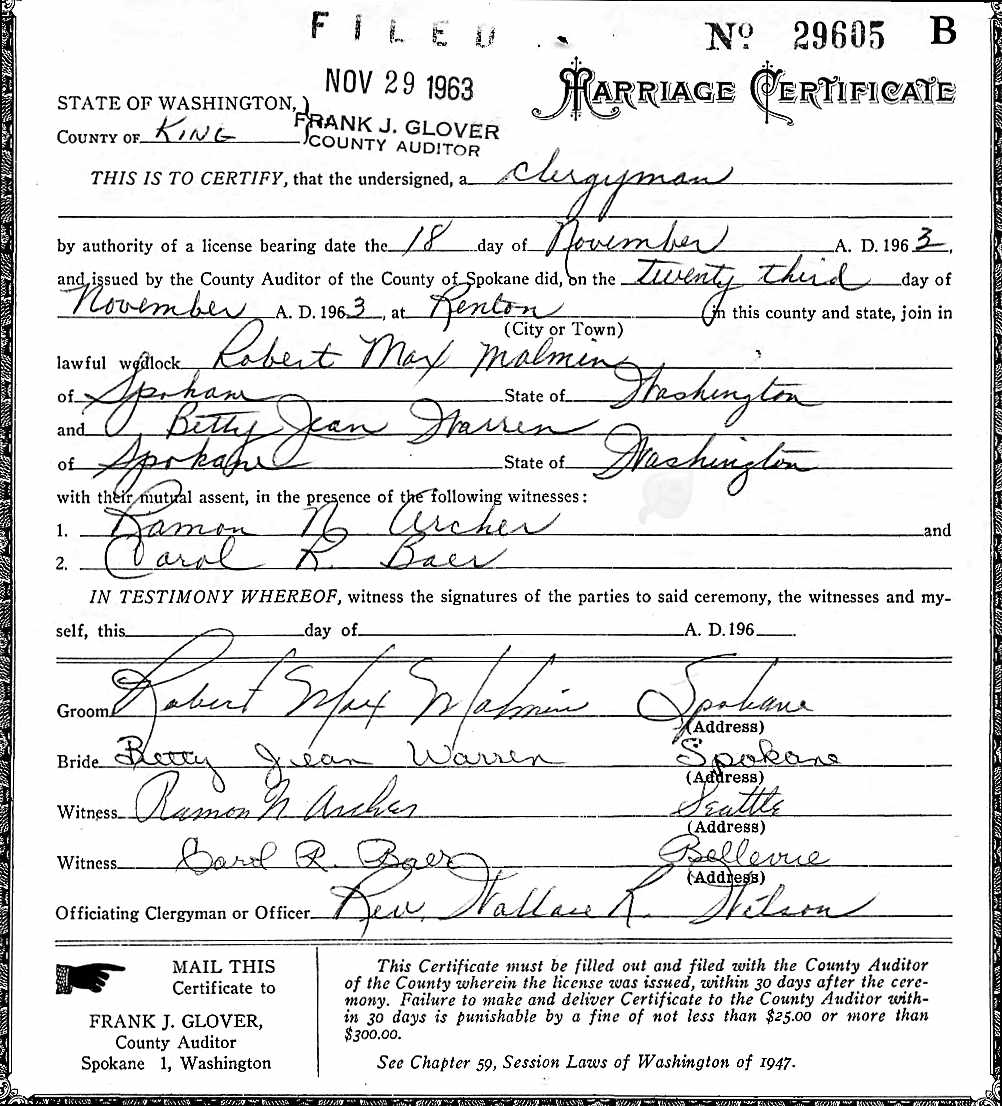 FILED
Nº 29605 B
NOV 29 1963
MARRIAGE CERTIFICATE
STATE OF WASHINGTON, )
FRANK J. GLOVER
COUNTY OF King
COUNTY AUDITOR
THIS IS TO CERTIFY, that the undersigned, a clergyman
by authority of a license bearing date the 18 day of November A. D. 1963,
and issued by the County Auditor of the County of Spokane did, on the twenty third day of
November A. D. 1963, at Renton (in this county and state, join in
(City or Town)
lawful wedlock Robert Max Malmin
of Spokane State of Washington
and Betty Jean Warren
of Spokane State of Washington
with their mutual assent, in the presence of the following witnesses:
1. Ramon N Archer and
2. Carol R. Baer
IN TESTIMONY WHEREOF, witness the signatures of the parties to said ceremony, the witnesses and my-
self, this day of A. D. 196 .
Groom Robert Max Malmin Spokane
(Address)
Bride Betty Jean Warren Spokane
(Address)
Witness Ramon N Archer Seattle
(Address)
Witness Carol R. Baer Bellevue
(Address)
Officiating Clergyman or Officer Rev. Wallace R. Wilson
MAIL THIS
Certificate to
FRANK J. GLOVER,
County Auditor
Spokane 1, Washington
This Certificate must be filled out and filed with the County Auditor
of the County wherein the license was issued, within 30 days after the cere-
mony. Failure to make and deliver Certificate to the County Auditor with-
in 30 days is punishable by a fine of not less than $25.00 or more than
$300.00.
See Chapter 59, Session Laws of Washington of 1947.